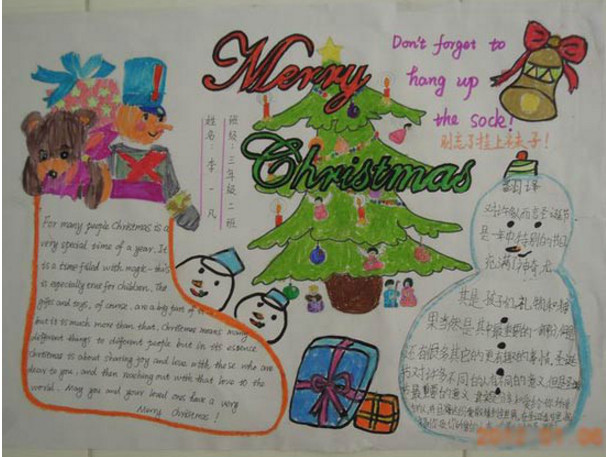 Merry
Christmas
Don't forget to
hang up
the sock!
别忘了挂上袜子!
班级:三年级二班
姓名:李一凡
For many people Christmas is a
very special time of a year. It
is a time filled with magic - this
is especially true for children. The
gifts and toys, of course, are a big part of it
but it is much more than that, Christmas means many
different things to different people but in its essence
Christmas is about sharing joy and love with those who are
dear to you and then reaching out with that love to the
world. May you and your loved ones have a very
Merry Christmas!
翻译
对许多人而言圣诞节
是一年中特别的
充满了神奇,尤
其是孩子们,礼物
果当然是其中最重要的一部分
还有很多其它的更有趣的事情,圣诞
节对许多不同的人有不同的意义,但是
最重要的意义
2012 01 06